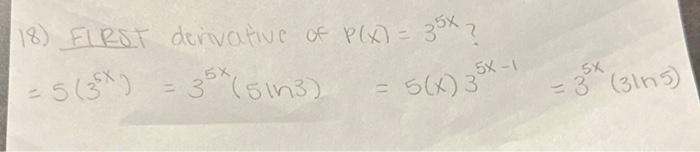 18) FIRST derivative of P(x) = 3^{5x}?
= 5(3^{5x}) = 3^{5x}(5ln3) = 5(x)3^{5x-1} = 3^{5x}(3ln5)